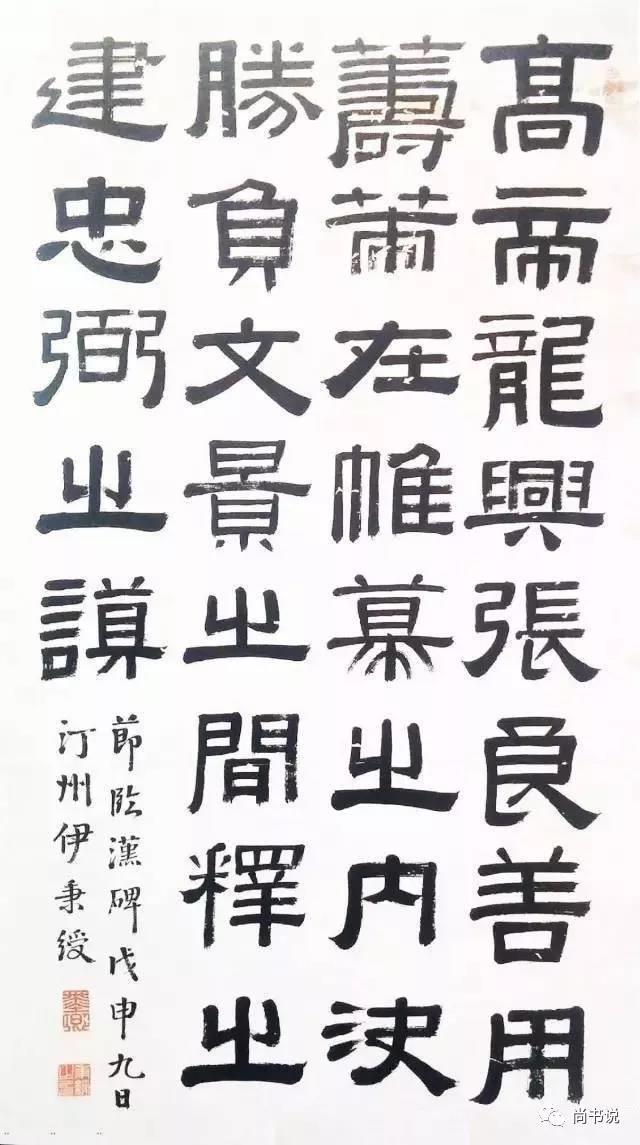 高帝龍興張良善用
籌策在帷幕之内決
勝負文景之間釋之
建忠弼之謨
節臨漢碑戊申九日
汀州伊秉綬
尚书说